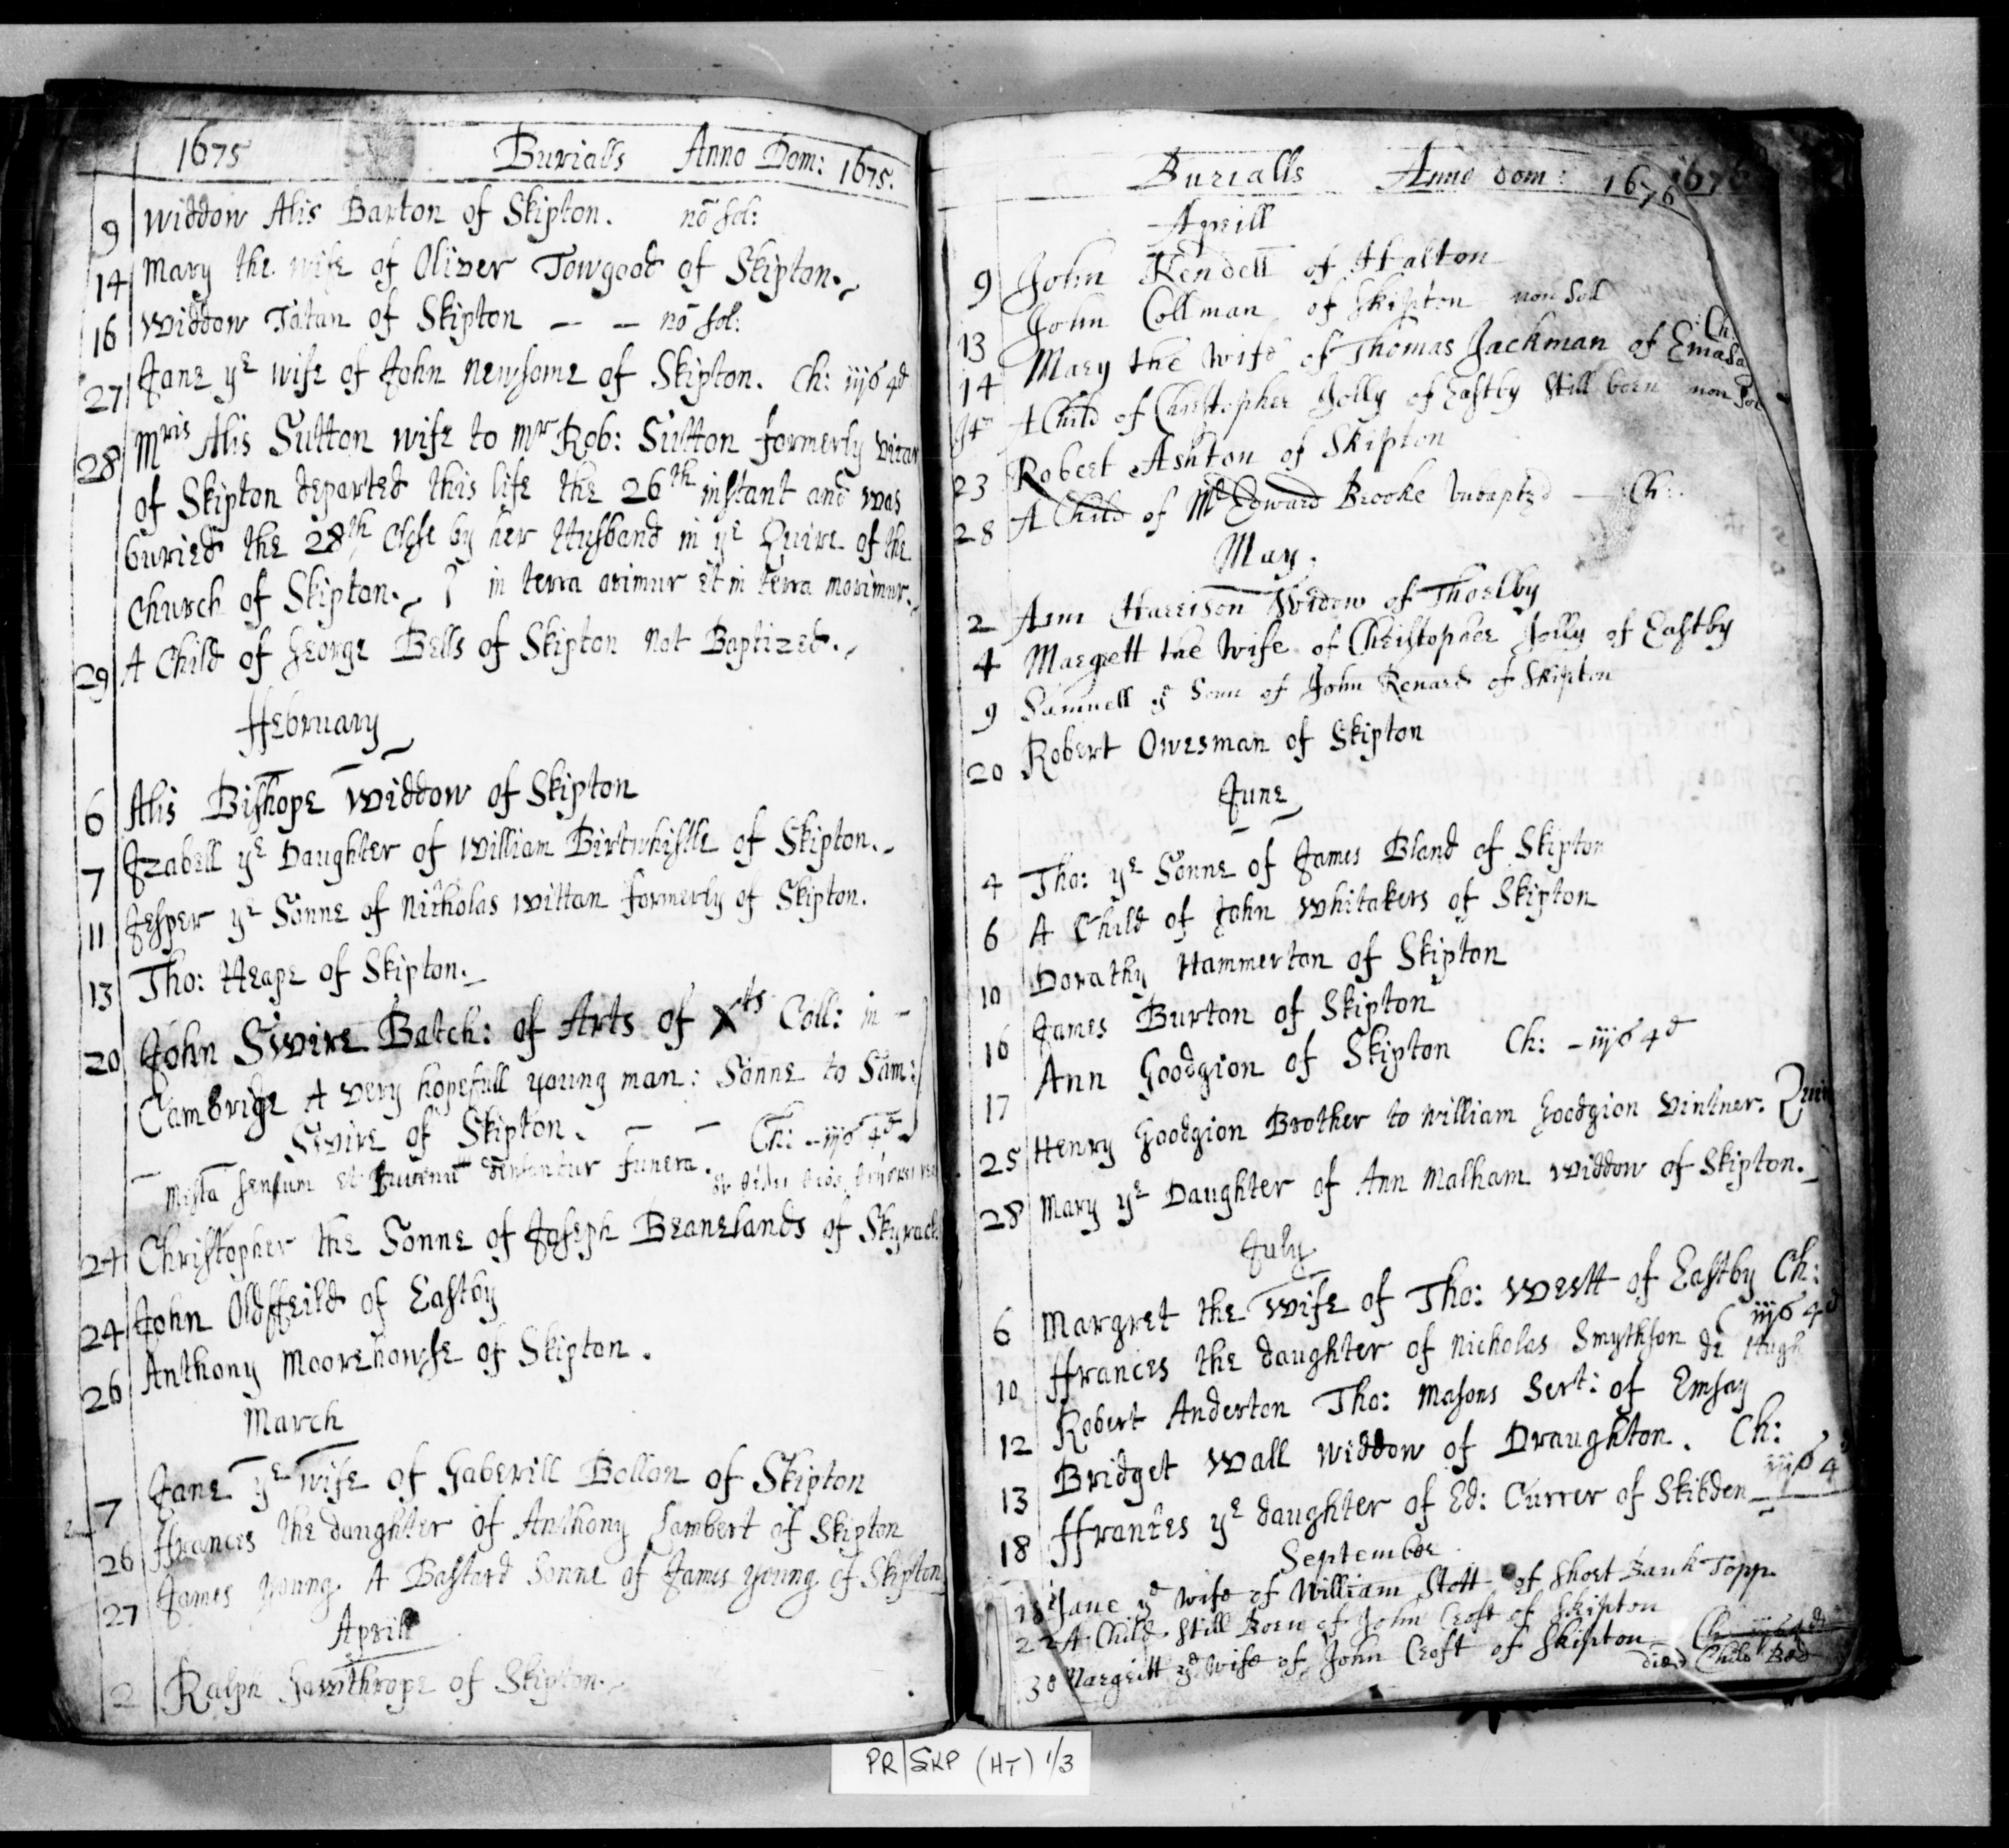 1675 Burialls Anno Dom: 1675.
9 Widdow Alis Barton of Skipton. nō sol:
14 Mary the wife of Oliver Towgood of Skipton.
16 Widdow Tatan of Skipton — — nō sol:
27 Jane ye wife of John Newsome of Skipton. Ch: iijs 4d
28 Mris Alis Sutton wife to Mr Rob: Sutton formerly vicar
of Skipton departed this life the 26th instant and was
buried the 28th close by her Husband in ye Quire of the
Church of Skipton. in terra orimur et in terra morimur.
29 A Child of George Bells of Skipton not Baptized.
ffebruary
6 Alis Bishope Widdow of Skipton
7 Izabell ye Daughter of William Birtwhistle of Skipton.
11 Jesper ye Sonne of Nicholas Wittan formerly of Skipton.
13 Tho: Heape of Skipton.
20 John Swire Batch: of Arts of Xts Coll: in -
Cambridge A very hopefull young man: Sonne to Sam:
Swire of Skipton. — — Ch: - iijs 4d
Mista senum et Juvenū densantur funera.
24 Christopher the Sonne of Joseph Beanelands of Skyrack
24 John Oldffeild of Eastby
26 Anthony Moorehowse of Skipton.
March
7 Jane ye wife of Gaberill Bollan of Skipton
26 ffrances the daughter of Anthony Lambert of Skipton
27 James Young A Bastard Sonne of James Young of Skipton
Aprill
2 Ralph Hawthrope of Skipton.
Burialls Anno dom: 1676 1676
Aprill
9 John Kendell of Halton
13 John Collman of Skipton non Sol
14 Mary the Wife of Thomas Jackman of Emsay Ch:
A Child of Christopher Jolly of Eastby Still born non Sol
23 Robert Ashton of Skipton
28 A Child of Mr Edward Brooke Unbaptzd — Ch:
May
2 Ann Harrison Widow of Thorlby
4 Margrett the Wife of Christopher Jolly of Eastby
9 Samuell ye Sonn of John Renard of Skipton
20 Robert Owesman of Skipton
June
4 Tho: ye Sonne of James Bland of Skipton
6 A Child of John Whitakers of Skipton
10 Dorathy Hammerton of Skipton
16 James Burton of Skipton
17 Ann Goodgion of Skipton Ch: - iijs 4d
25 Henry Goodgion Brother to William Goodgion Vintner. Quire
28 Mary ye Daughter of Ann Malham Widdow of Skipton.
July
6 Margret the Wife of Tho: Westt of Eastby Ch:
iijs 4d
10 ffrances the daughter of Nicholas Smythson de Hugh
12 Robert Anderton Tho: Masons Sert: of Emsay
13 Bridget Wall Widdow of Draughton. Ch:
iijs 4d
18 ffrances ye daughter of Ed: Currer of Skibden
September
18 Jane ye Wife of William Stott of Short Bank Topp.
22 A Child Still Born of John Croft of Skipton
30 Margritt ye Wife of John Croft of Skipton Ch iijs 4d
died Child Bed
PR/SKP (HT) 1/3